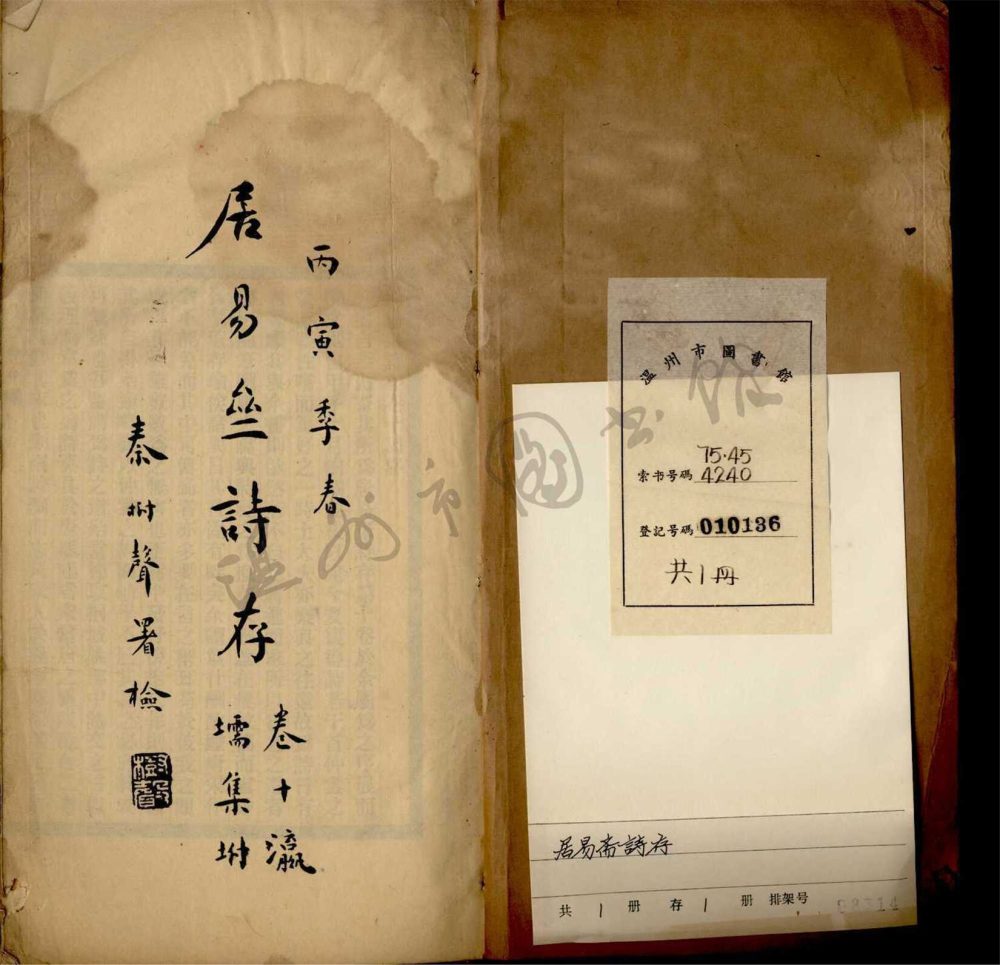 丙寅季春
居易亝詩存
卷十瀛
壖集坿
秦树聲署檢
樹聲
温州市圖書館
75·45
索书号碼 4240
登記号碼 010136
共1册
居易斋詩存
共 1 册 存 1 册 排架号
温州市圖书馆